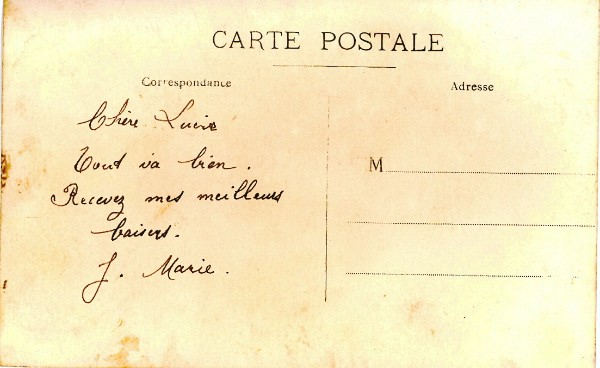 CARTE POSTALE
Correspondance
Adresse
Chère Lucie
Tout va bien.
Recevez mes meilleurs
baisers.
J. Marie.
M